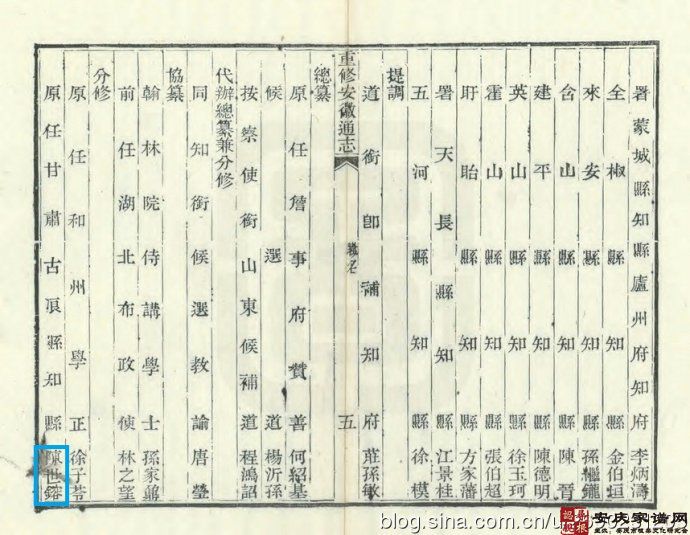 署蒙城縣知縣廬州府知府李炳濤
全椒縣知縣金伯垣
來安縣知縣孫繼鑨
含山縣知縣陳晉
建平縣知縣陳德明
英山縣知縣徐玉珂
霍山縣知縣張伯超
盱眙縣知縣方家藩
署天長縣知縣江景桂
五河縣知縣徐模
提調
道銜卽補知府莊孫敏
重修安徽通志
職名
五
總纂
原任詹事府贊善何紹基
候選道楊沂孫
按察使銜山東候補道程鴻詔
代辦總纂兼分修
同知銜候選教諭唐瑩
協纂
翰林院侍講學士孫家鼐
前任湖北布政使林之望
分修
原任和州學正徐子苓
原任甘肅古浪縣知縣陳世鎔
blog.sina.com.cn/u
安庆家谱网